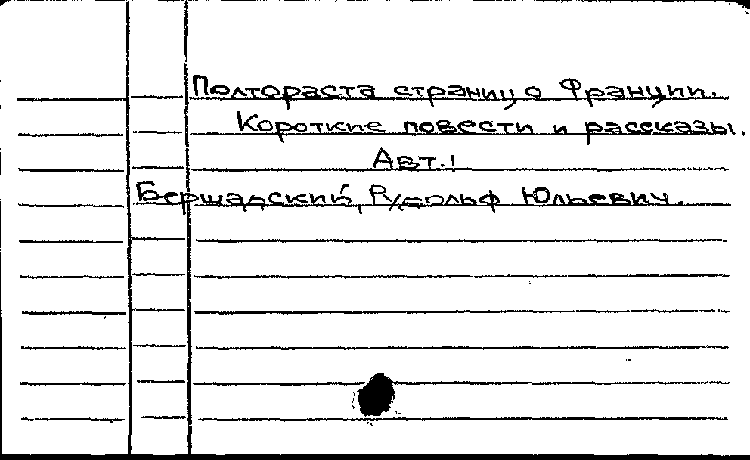 Полтораста страниц о Франции.
Короткие повести и рассказы.
Авт.:
Бершадский, Рудольф Юльевич.